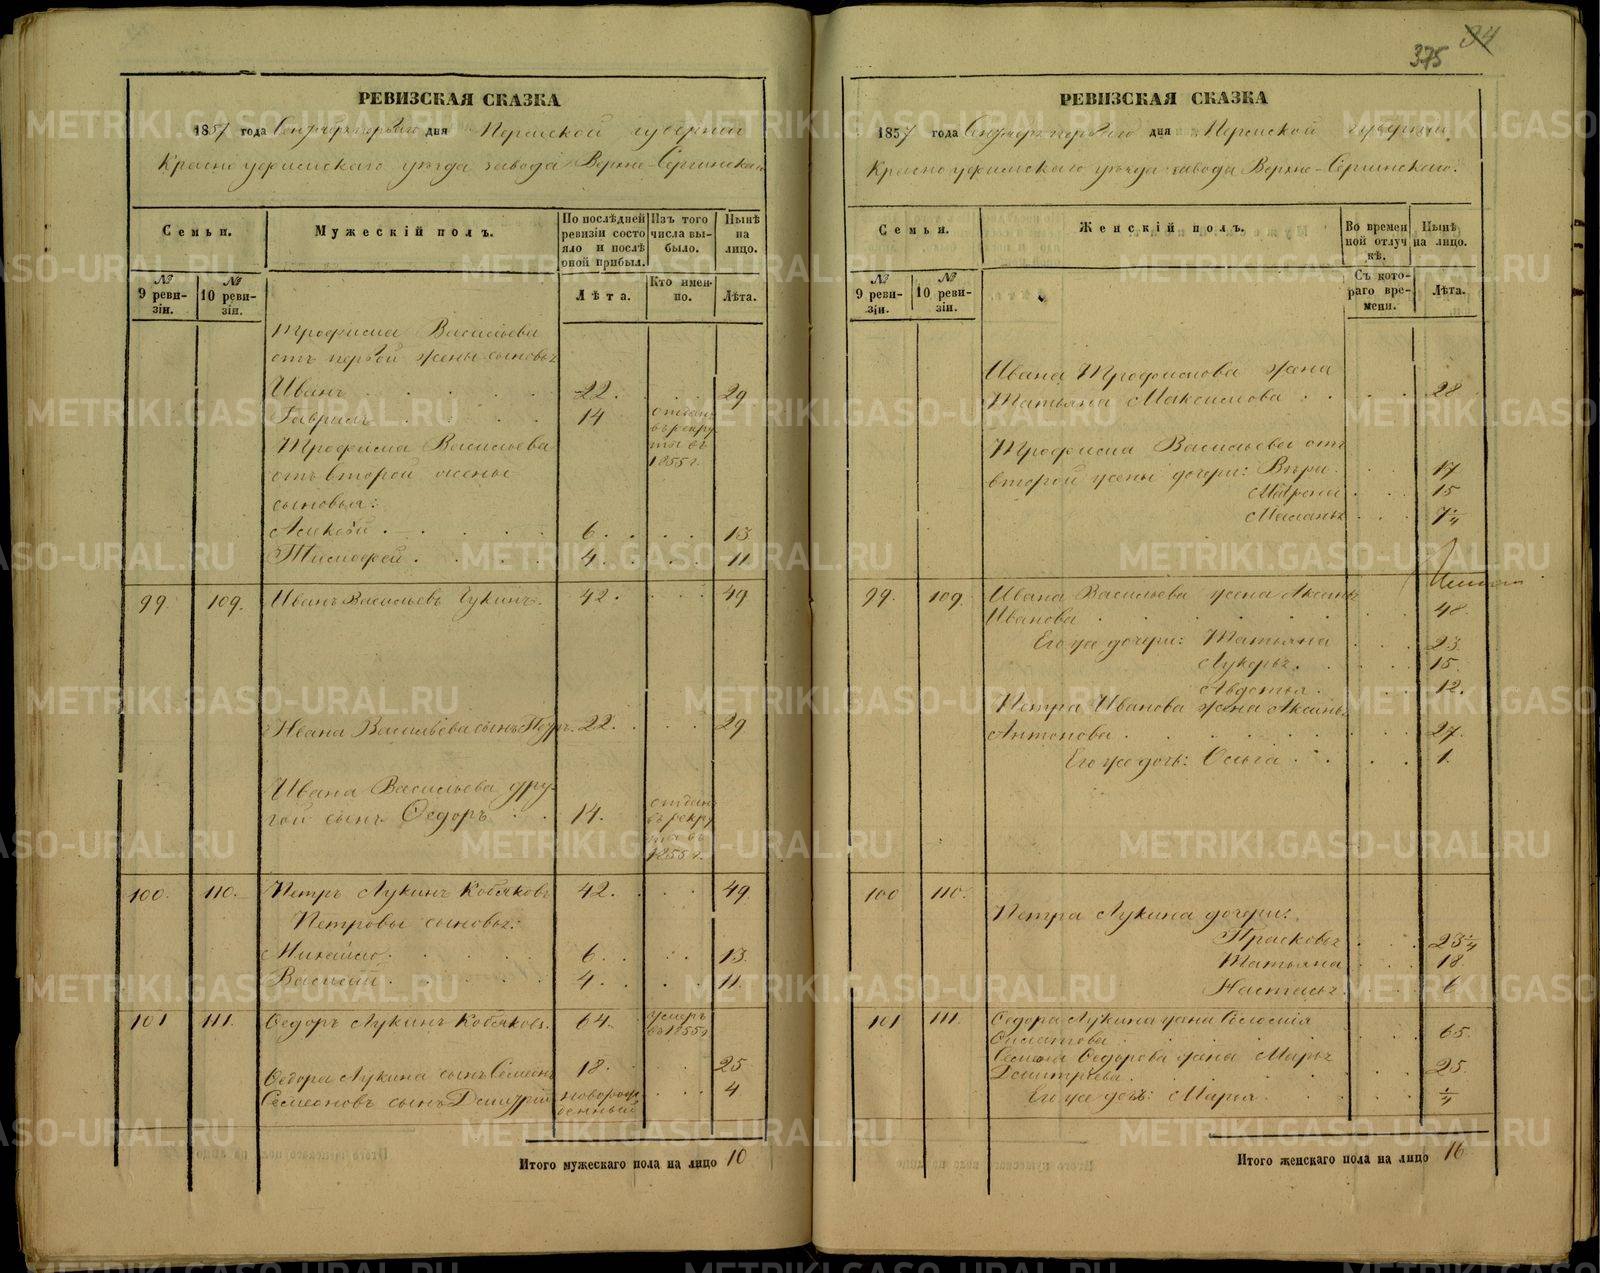 375 34
РЕВИЗСКАЯ СКАЗКА
1857 года Сентября первого дня Пермской губернии
Красноуфимского уезда завода Верхне-Сергинскаго
Семьи.
Мужескій полъ.
По послѣдней ревизіи состояло и послѣ оной прибыл.
Изъ того числа выбыло.
Нынѣ на лицо.
№ 9 ревизіи.
№ 10 ревизіи.
Лѣта.
Кто именно.
Лѣта.
Трофима Васильева
отъ первой жены сыновья
Иванъ 22. 29
Гаврилъ 14 отданъ въ рекруты въ 1855 г.
Трофима Васильева
отъ второй жены
сыновья:
Алексѣй 6. 13
Тимофей 4. 11
99. 109. Иванъ Васильевъ Чукинъ. 42. 49
Ивана Васильева сынъ Петръ 22. 29
Ивана Васильева дру-
гой сынъ Ѳедоръ 14. отданъ въ рекруты въ 1855 г.
100. 110. Петръ Лукинъ Кобяковъ 42. 49
Петровы сыновья:
Михайло 6. 13
Василій 4. 11
101 111. Ѳедоръ Лукинъ Кобяковъ. 64. умеръ въ 1855 г.
Ѳедора Лукина сынъ Семенъ 18. 25
Семеновъ сынъ Дмитрій новорожденный 4
Итого мужескаго пола на лицо 10
РЕВИЗСКАЯ СКАЗКА
1857 года Сентября первого дня Пермской губернии
Красноуфимского уезда завода Верхне-Сергинскаго.
Семьи.
Женскій полъ.
Во временной отлучкѣ.
Нынѣ на лицо.
№ 9 ревизіи.
№ 10 ревизіи.
Съ котораго времени.
Лѣта.
Ивана Трофимова жена
Татьяна Максимова 28
Трофима Васильева отъ
второй жены дочери: Вѣра 17
Матрена 15
Маланья 7 1/4
99. 109. Ивана Васильева жена Аксинья
Иванова 48.
Его же дочери: Татьяна 23.
Лукерья 15.
Авдотья 12.
Петра Иванова жена Аксинья
Антонова 27.
Его же дочь: Ольга 1.
100 110.
Петра Лукина дочери:
Прасковья 23 1/4
Татьяна 18
Настасья 6
101 111. Ѳедора Лукина жена
65.
Семена Ѳедорова жена Марья
Дмитріева 25.
Его же дочь: Марья 1/4
Итого женскаго пола на лицо 16
METRIKI.GASO-URAL.RU